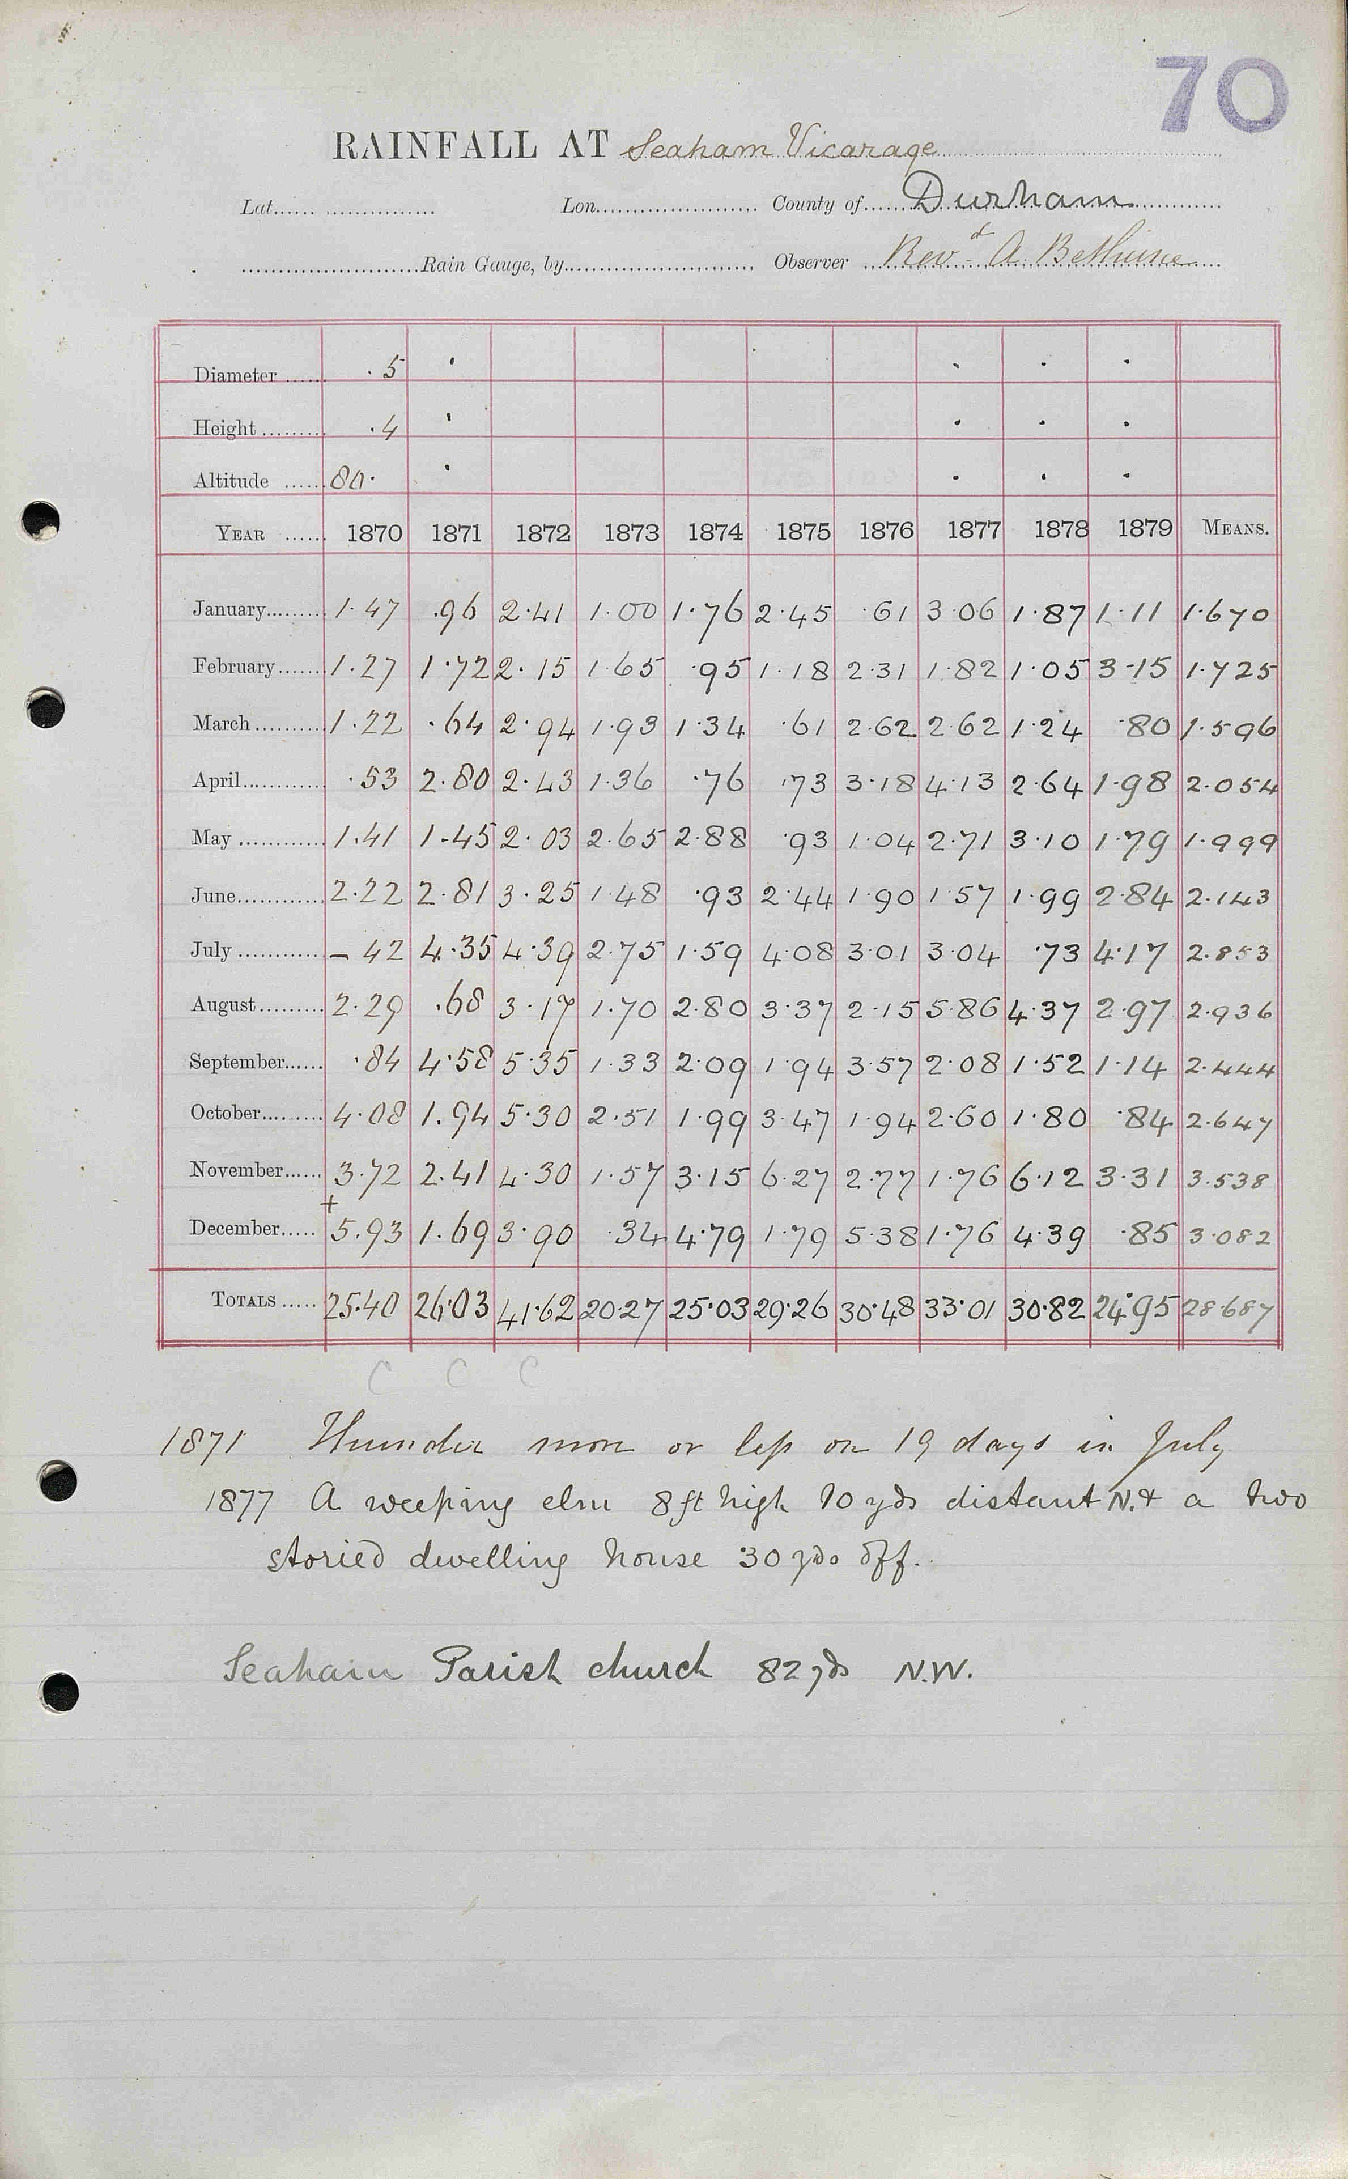 70
RAINFALL AT Seaham Vicarage
Lat. Lon. County of Durham
Rain Gauge, by Observer Revd A Bethune
Diameter . 5
Height . 4
Altitude 80.
YEAR 1870 1871 1872 1873 1874 1875 1876 1877 1878 1879 MEANS.
January 1.47 .96 2.41 1.00 1.76 2.45 .61 3.06 1.87 1.11 1.670
February 1.27 1.72 2.15 1.65 .95 1.18 2.31 1.82 1.05 3.15 1.725
March 1.22 .64 2.94 1.93 1.34 .61 2.62 2.62 1.24 .80 1.596
April .53 2.80 2.43 1.36 .76 .73 3.18 4.13 2.64 1.98 2.054
May 1.41 1.45 2.03 2.65 2.88 .93 1.04 2.71 3.10 1.79 1.999
June 2.22 2.81 3.25 1.48 .93 2.44 1.90 1.57 1.99 2.84 2.143
July – 42 4.35 4.39 2.75 1.59 4.08 3.01 3.04 .73 4.17 2.853
August 2.29 .68 3.17 1.70 2.80 3.37 2.15 5.86 4.37 2.97 2.936
September .84 4.58 5.35 1.33 2.09 1.94 3.57 2.08 1.52 1.14 2.444
October 4.08 1.94 5.30 2.51 1.99 3.47 1.94 2.60 1.80 .84 2.647
November 3.72 2.41 4.30 1.57 3.15 6.27 2.77 1.76 6.12 3.31 3.538
December + 5.93 1.69 3.90 .34 4.79 1.79 5.38 1.76 4.39 .85 3.082
TOTALS 25.40 26.03 41.62 20.27 25.03 29.26 30.48 33.01 30.82 24.95 28.687
C C C
1871 Thunder more or less on 19 days in July
1877 A weeping elm 8 ft high 10 yds distant N. & a two
storied dwelling house 30 yds off.
Seaham Parish church 82 yds N.W.